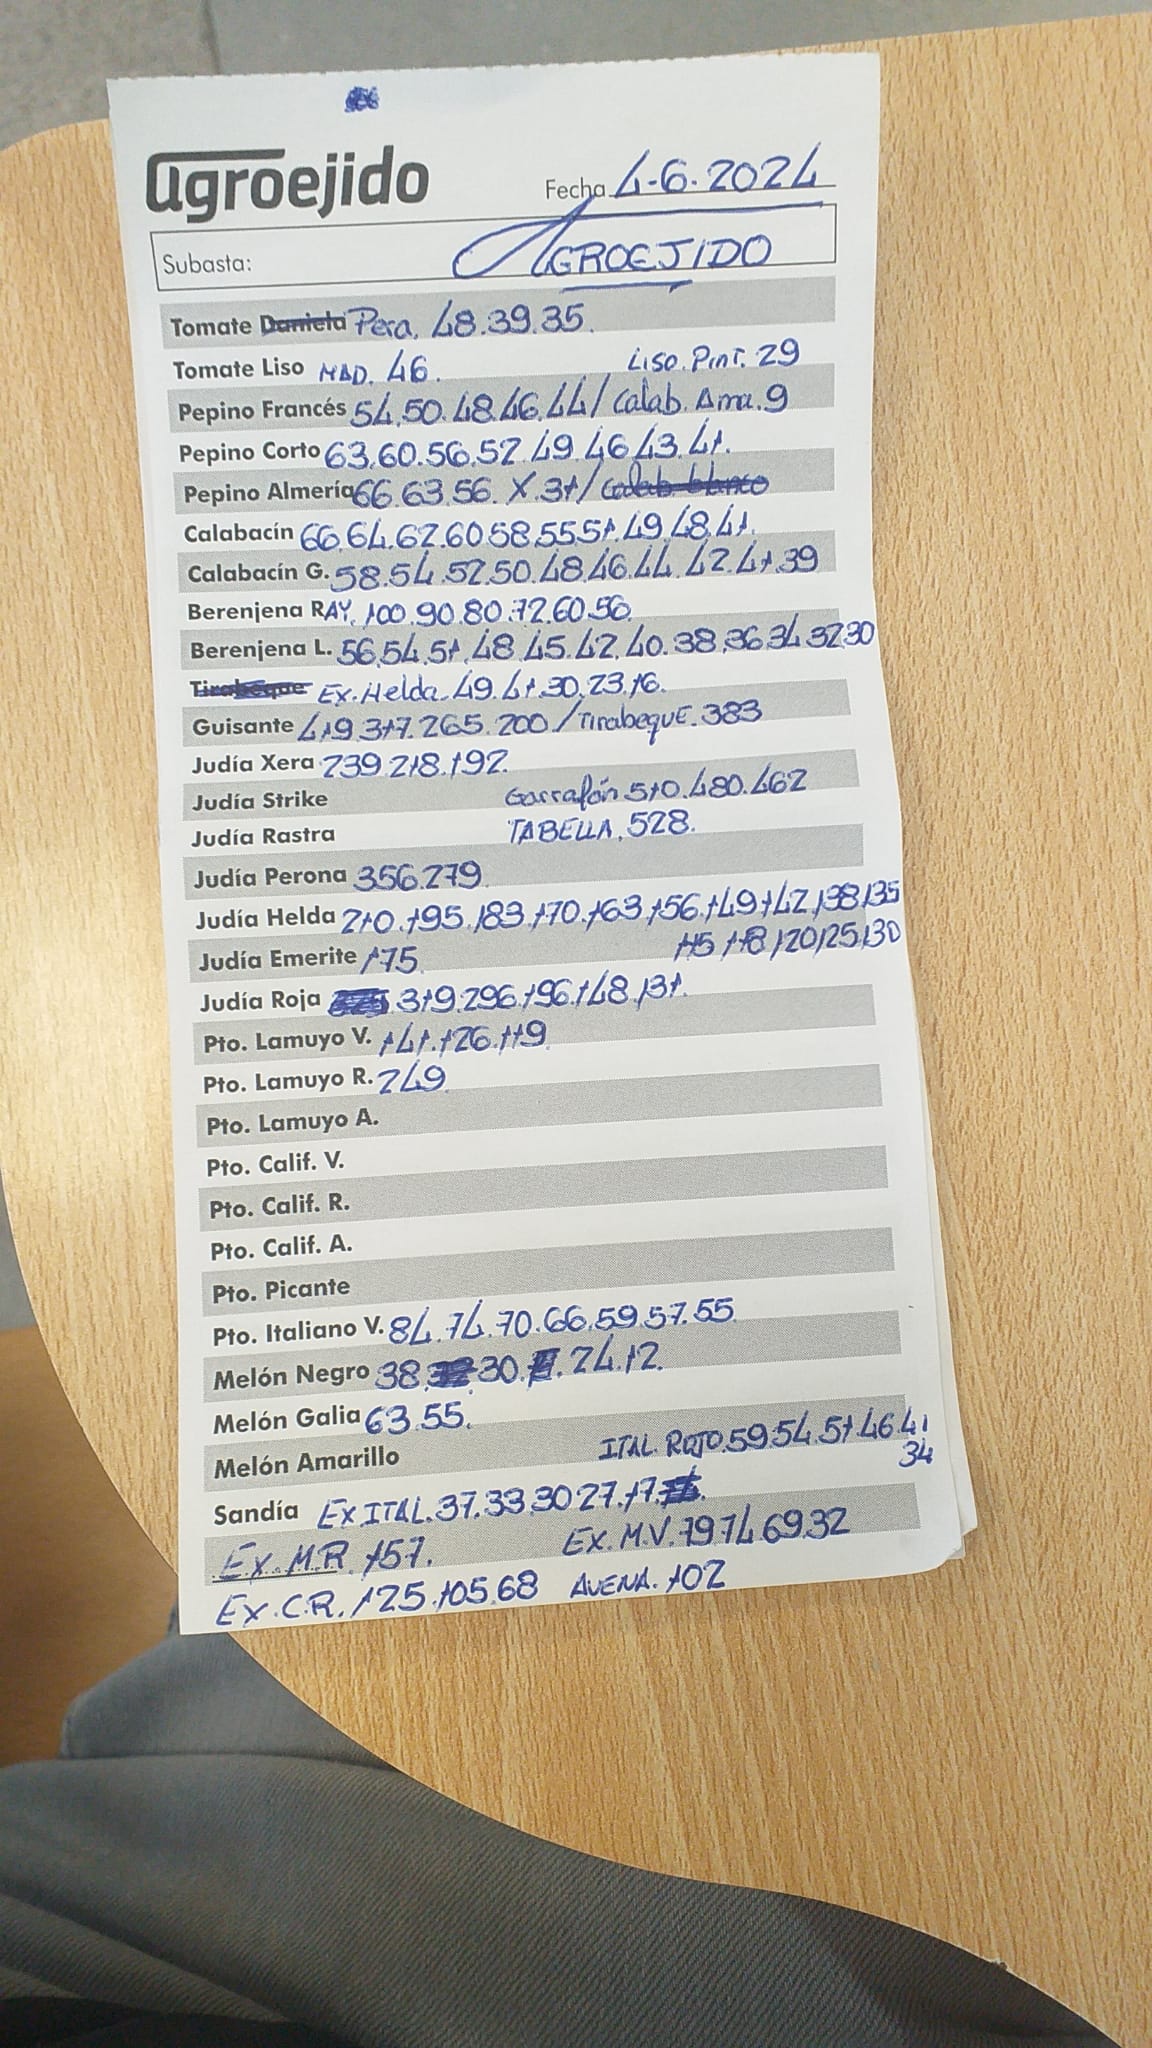 agroejido
Fecha 4-6.2024
Subasta: AGROEJIDO
Tomate Daniela Pera. 48.39.35.
Tomate Liso MAD. 46. LISO.PINT. 29
Pepino Francés 54.50.48.46.44/Calab. Ama.9
Pepino Corto 63.60.56.52.49.46.43.41.
Pepino Almería 66.63.56. X.31/ Calab blanco
Calabacín 66.64.62.60.58.55.51.49.48.41.
Calabacín G. 58.54.52.50.48.46.44.42.41.39
Berenjena RAY. 100.90.80.72.60.56.
Berenjena L. 56.54.51.48.45.42.40.38.36.34.32.30
Tirabeque Ex.Helda.49.41.30.23.16.
Guisante 419.317.265.200/TirabequE.383
Judía Xera 239.218.192.
Judía Strike Garrafón 510.480.462
Judía Rastra TABELLA.528.
Judía Perona 356.279
Judía Helda 210.195.183.170.163.156.149.142.138.135
Judía Emerite 175. 115.118.120.125.130
Judía Roja 319.296.196.148.131.
Pto. Lamuyo V. 141.126.119
Pto. Lamuyo R. 249
Pto. Lamuyo A.
Pto. Calif. V.
Pto. Calif. R.
Pto. Calif. A.
Pto. Picante
Pto. Italiano V. 84.74.70.66.59.57.55
Melón Negro 38. 30. 24.12.
Melón Galia 63.55.
Melón Amarillo ITAL. ROJO.59.54.51.46.41
34
Sandía Ex ITAL.37.33.30.27.17.
Ex. M.R. 157. Ex. M.V. 79.74.69.32
Ex.C.R. 125.105.68 AVENA. 102